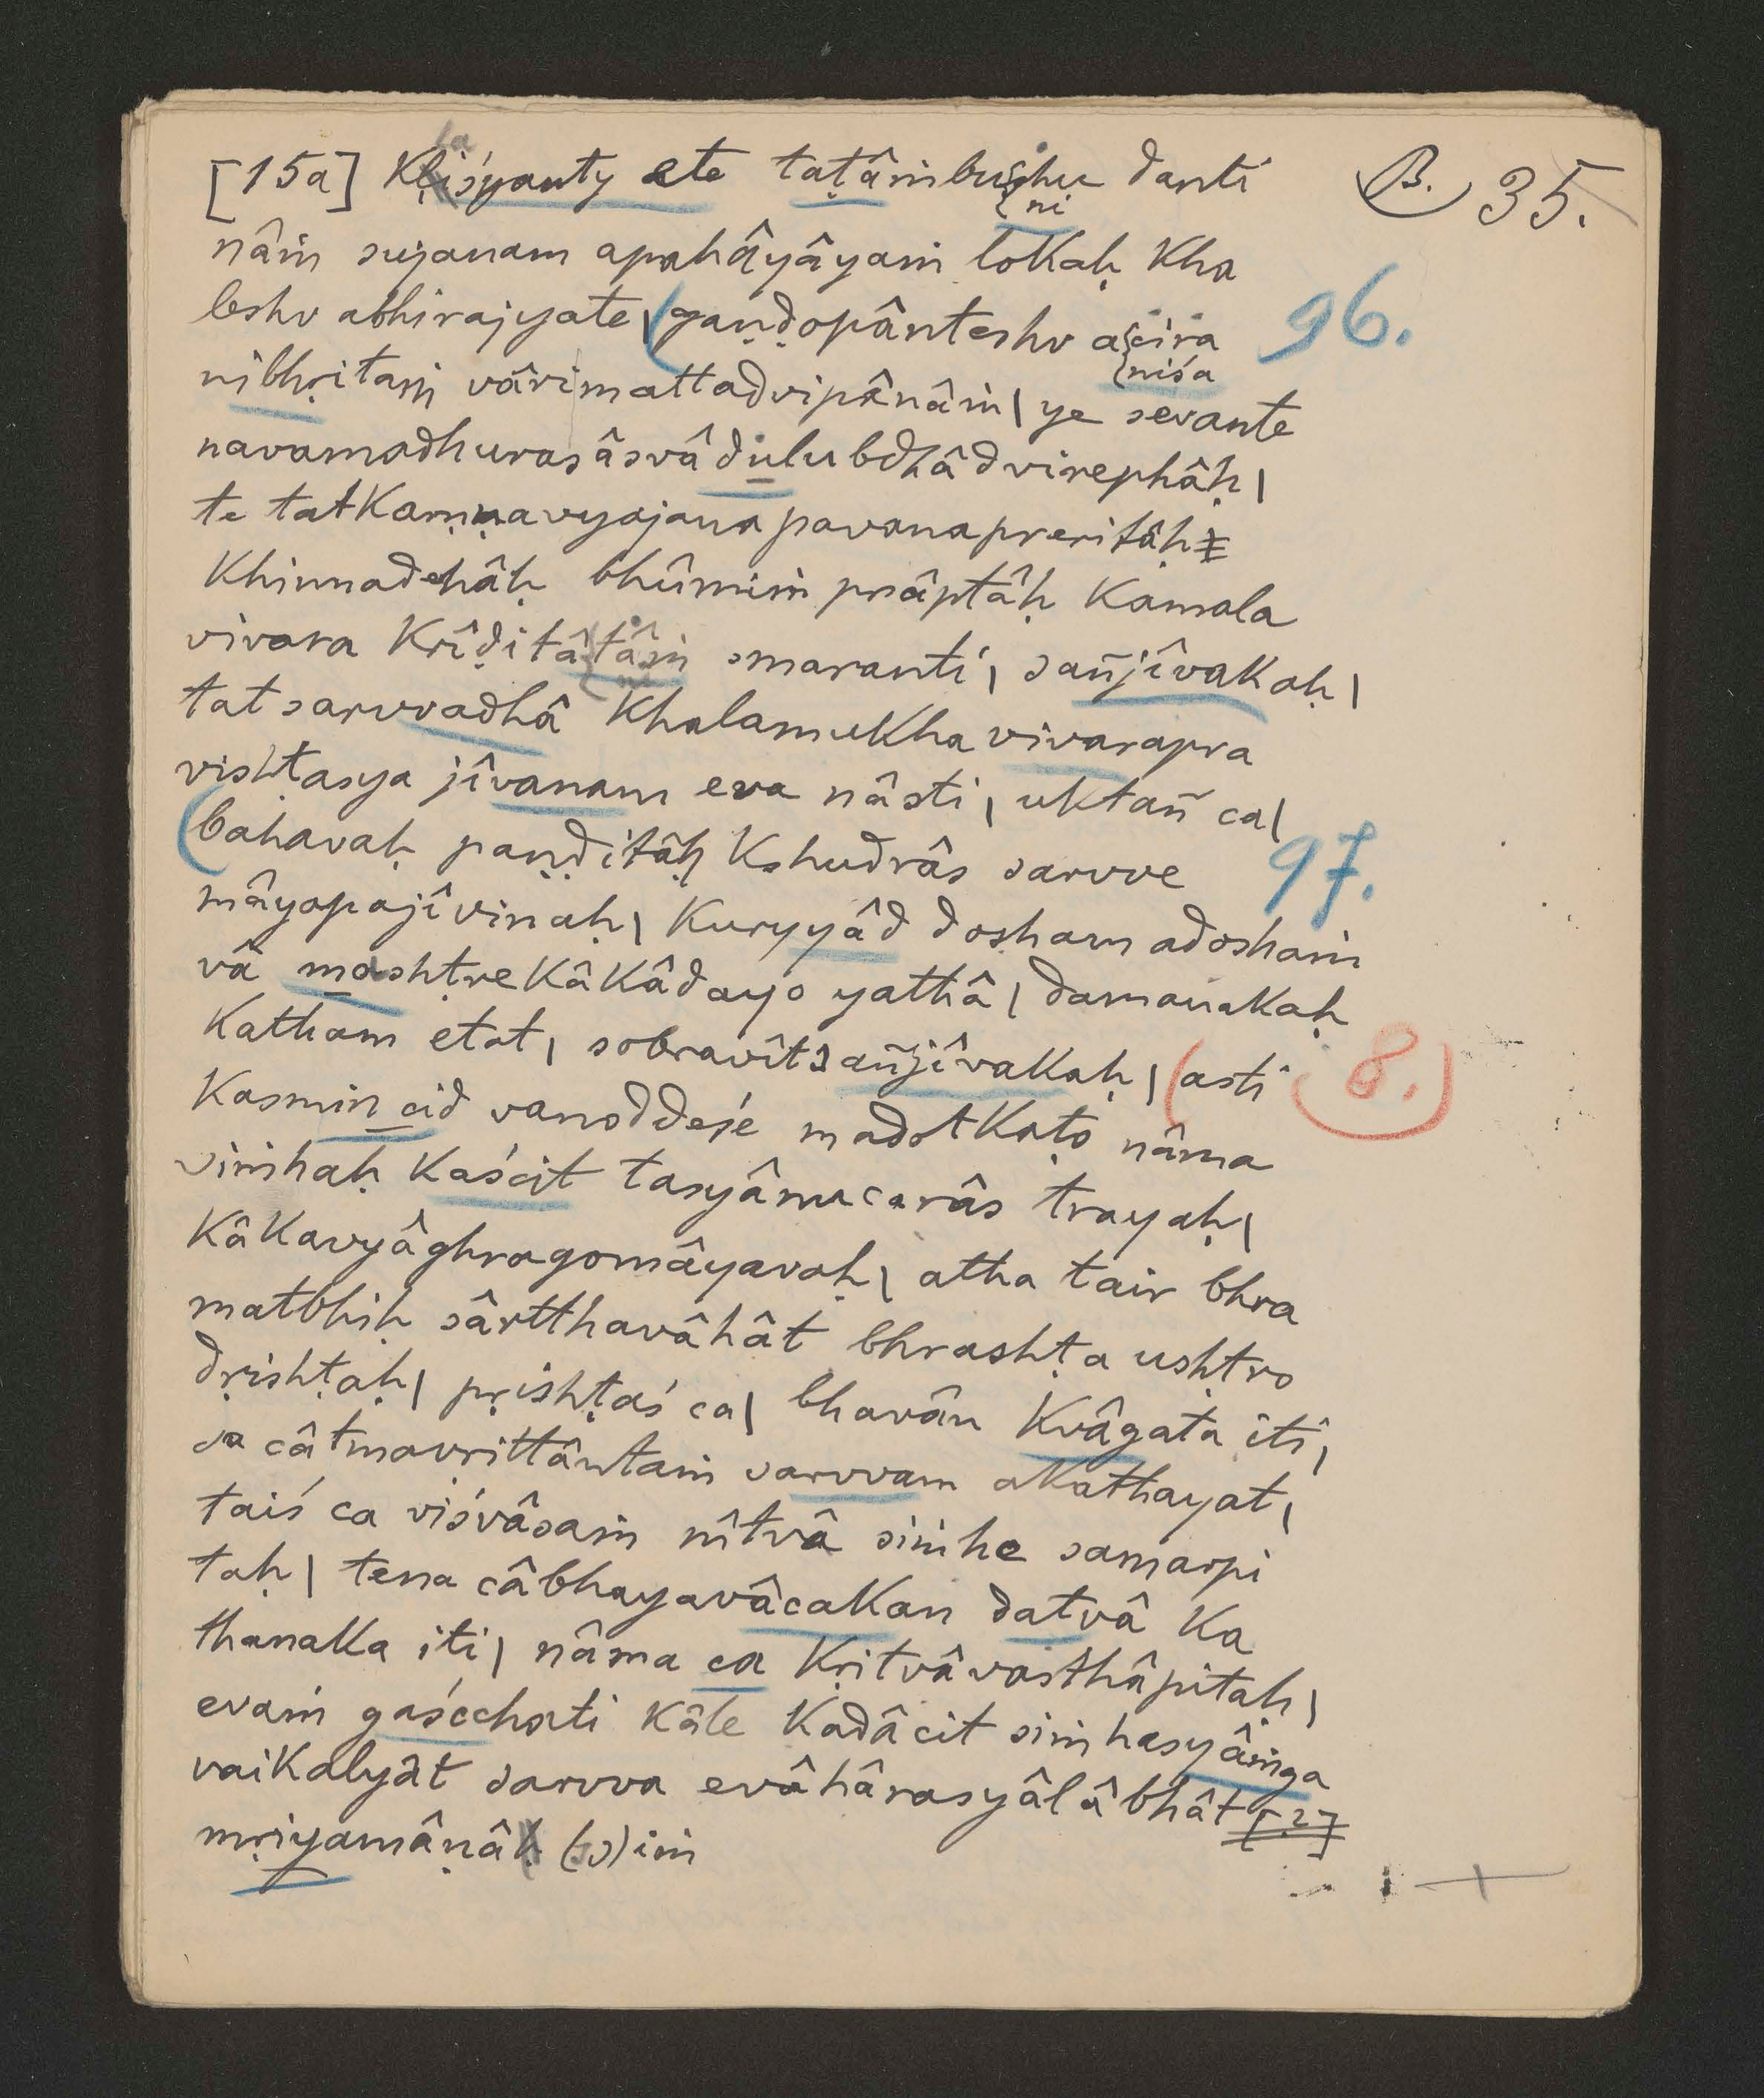 [15a] Kliśyanty ete taṭâṁbushu danti B. 35.
la
ni
nâṁ sujanam apahâyâyaṁ lokaḥ kha
leshv abhirajyate | gaṇḍopânteshv acira 96.
niśa
nibhṛitaṁ vârimattadvipânâṁ | ye sevante
navamadhurasâsvâdulubdhâdvirephâḥ |
te tatkarṇṇavyajanapavanapreritâḥ
khinnadehâḥ bhûmiṁ prâptâḥ kamala
vivara krîḍitâtâṁ smaranti | sañjîvakaḥ |
ni
tat sarvvadhâ khalamukhavivarapra
vishṭasya jîvanam eva nâsti | uktañ ca |
bahavaḥ paṇḍitâḥ kshudrâs sarvve 97.
mâyopajîvinaḥ | kuryyâd dosham adoshaṁ
vâ mashṭre kâkâdayo yathâ | damanakaḥ
katham etat | sobravît sañjîvakaḥ | asti 8.)
kasmin cid vanoddeśe madotkaṭo nâma
siṁhaḥ kaścit tasyânucarâs trayaḥ |
kâkavyâghragomâyavaḥ | atha tair bhra
matbhiḥ sârtthavâhât bhrashṭa ushṭro
dṛishṭaḥ | pṛishṭaś ca | bhavân kvâgata iti |
sa câtmavṛittântaṁ sarvvam akathayat |
taiś ca viśvâsaṁ nîtvâ siṁhe samarpi
taḥ | tena câbhayavâcakan datvâ ka
thanaka iti | nâma ca kṛitvâvasthâpitaḥ |
evaṁ gaścchati kâle kadâcit siṁhasyâṁga
vaikalyât sarvva evâhârasyâlâbhât [2]
mṛiyamâṇâḥ (s)iṁ